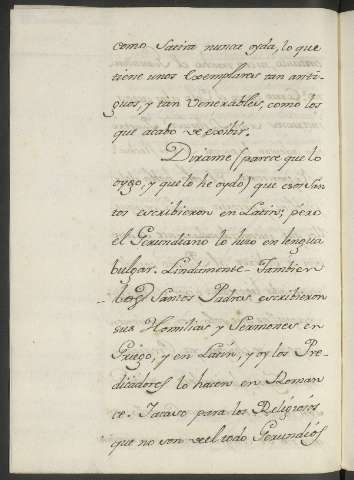 como Satira nunca oyda, lo que
tiene unos Exemplares tan anti-
guos, y tan Venerables, como los
que acabo de exibir.
Dirame (parece que lo
oygo, y que lo he oydo) que esos San
tos escribieron en Latin; pero
el Gerundiano lo hizo en lengua
bulgar. Lindamente. Tambien
los Santos Padres escribieron
sus Homilias y Sermones en
Griego, y en Latin, y oy los Pre-
dicadores lo hacen en Roman
ce. Y acaso para los Religiosos
que no son del todo Gerundios